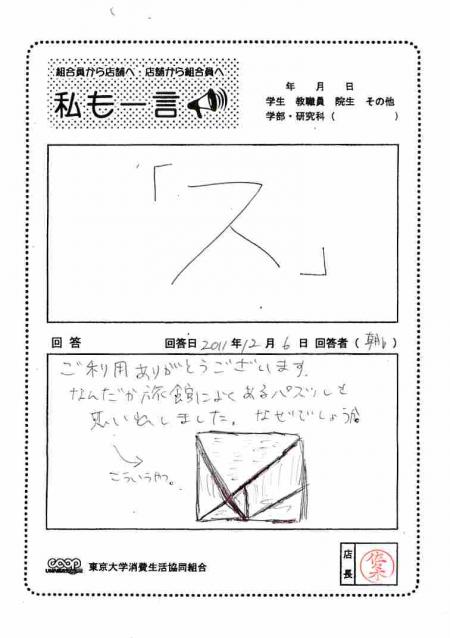 組合員から店舗へ・店舗から組合員へ
私も一言
年 月 日
学生 教職員 院生 その他
学部・研究科（ ）
「ス」
回答 回答日 2011年12月6日 回答者（朝 ）
ご利用ありがとうございます。
なんだか旅館によくあるパズルを
思い出しました。なぜでしょうね。
こういうやつ。
coop
東京大学消費生活協同組合
店長